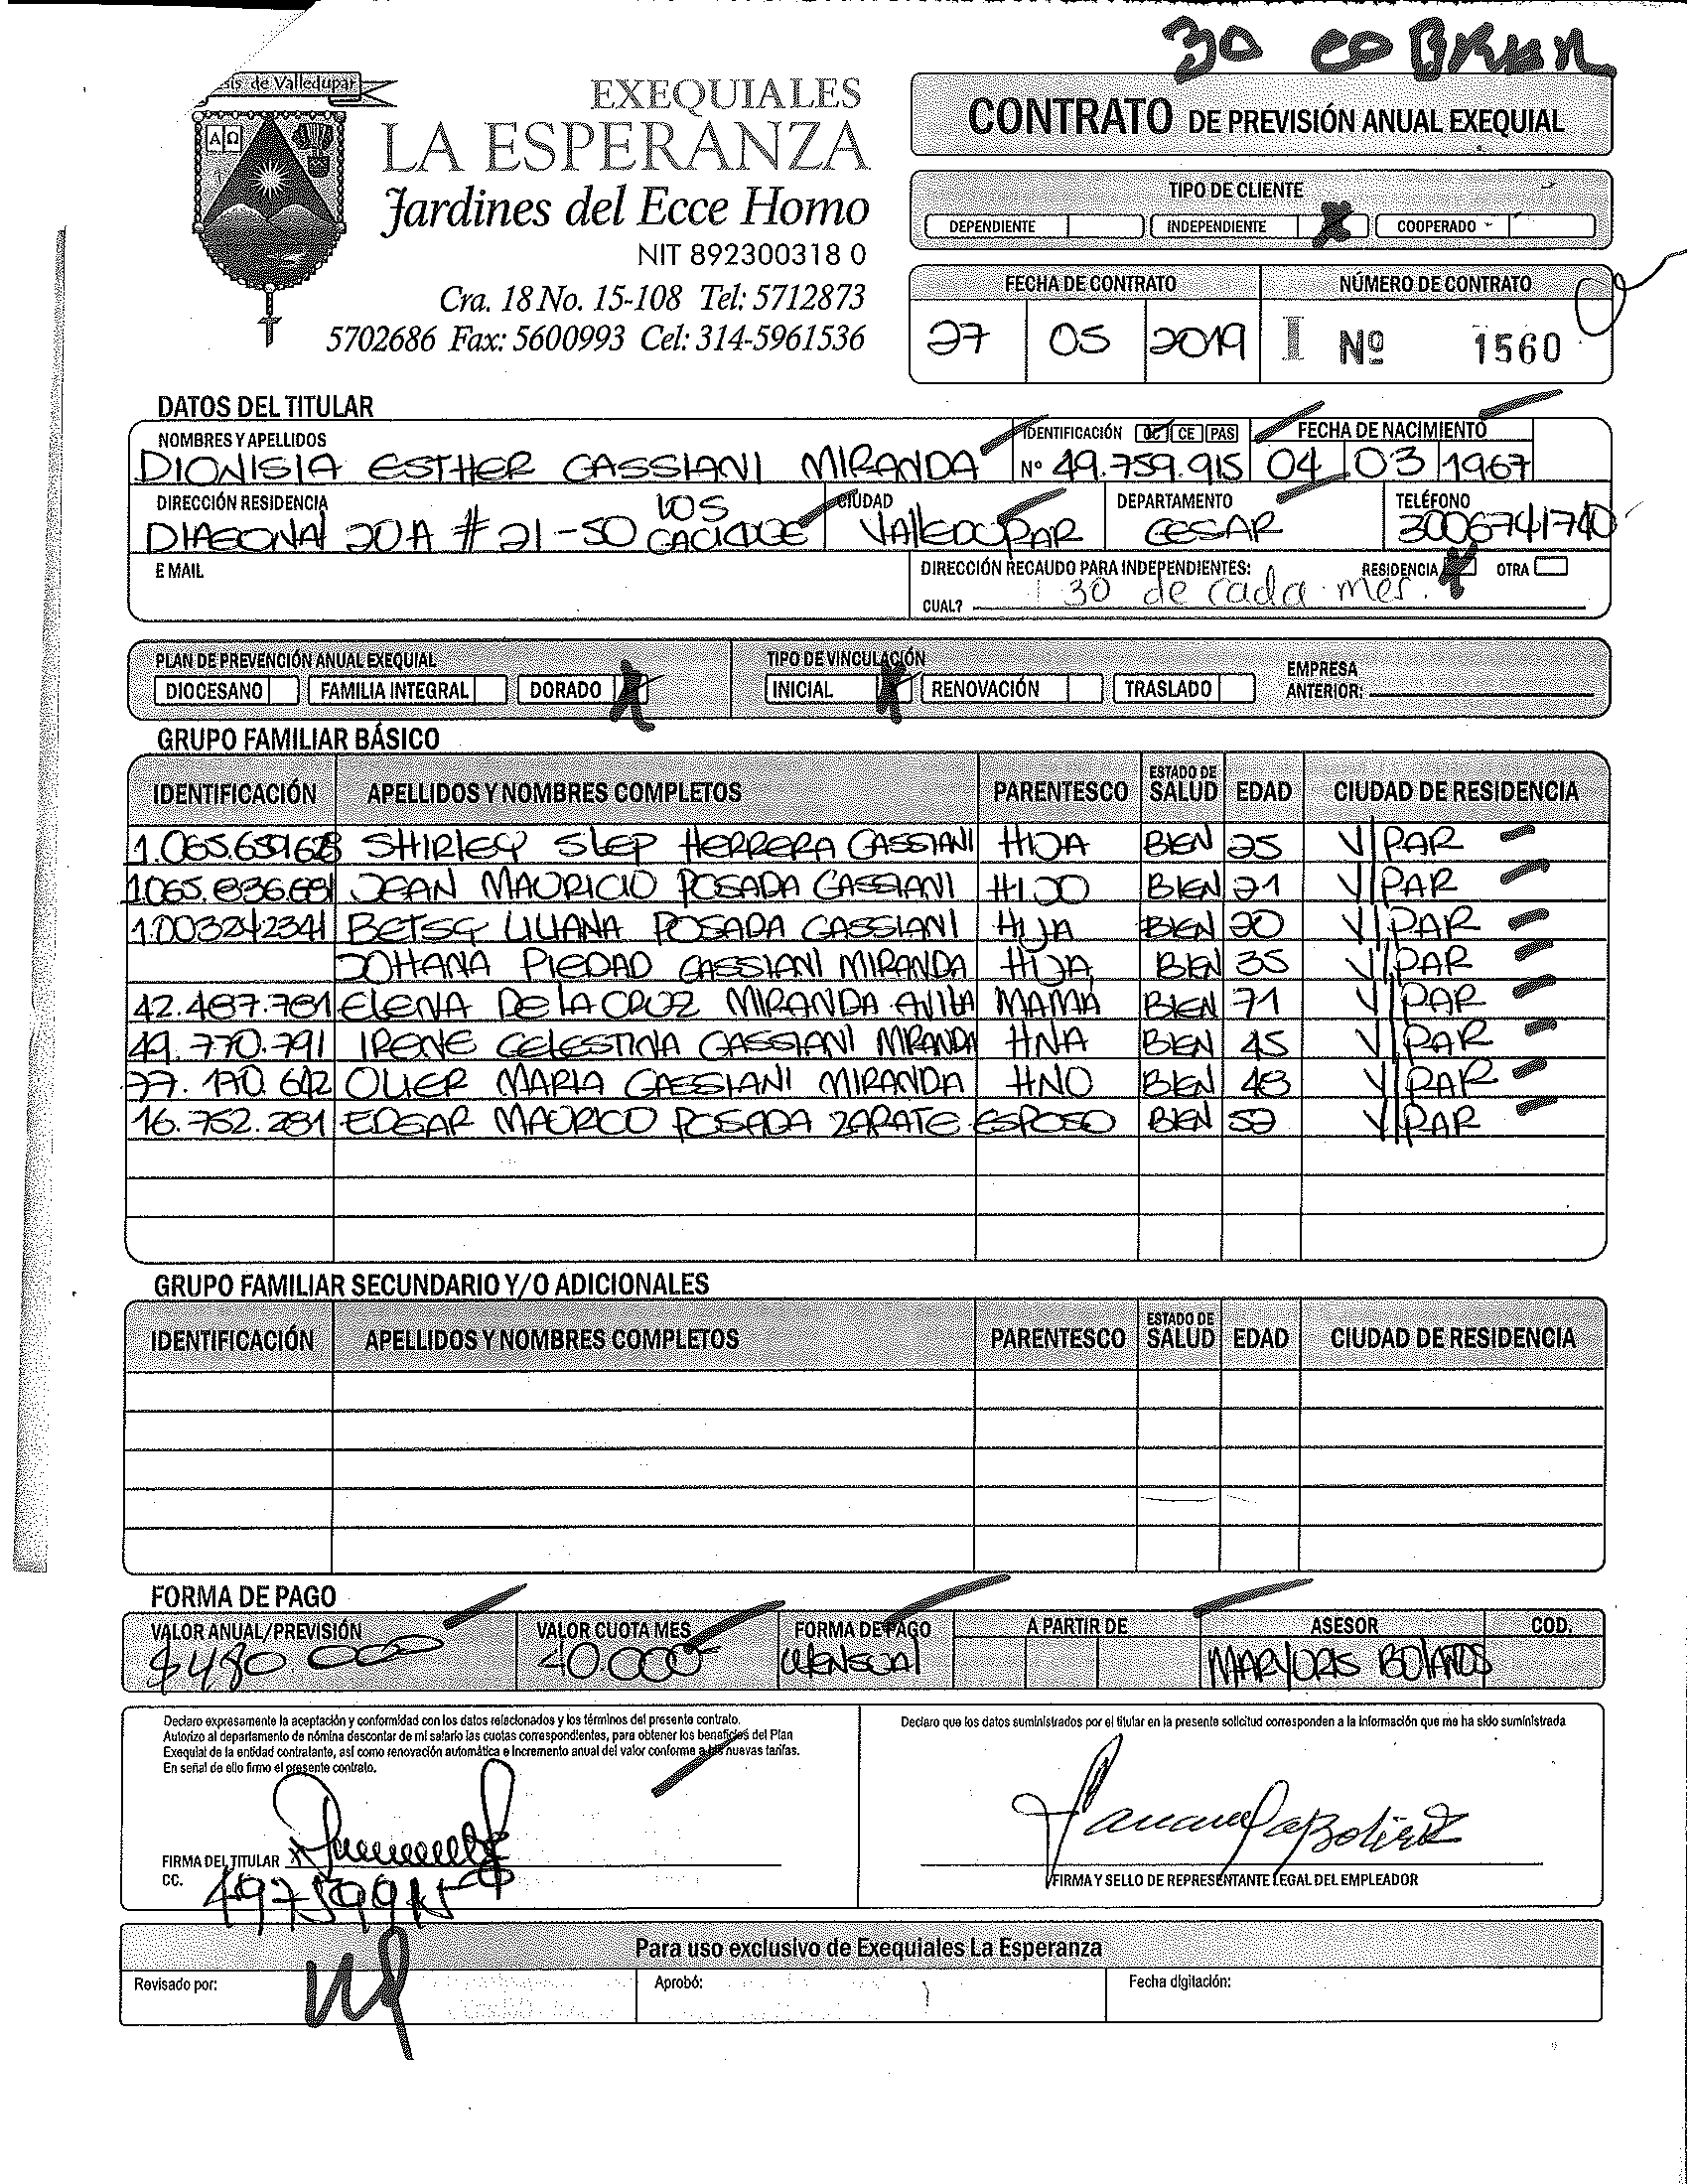 30 COBRAR
sis de Valledupar
A Ω
EXEQUIALES
LA ESPERANZA
Jardines del Ecce Homo
NIT 892300318 0
Cra. 18 No. 15-108 Tel: 5712873
5702686 Fax: 5600993 Cel: 314-5961536
CONTRATO DE PREVISIÓN ANUAL EXEQUIAL
TIPO DE CLIENTE
DEPENDIENTE INDEPENDIENTE X COOPERADO
FECHA DE CONTRATO NÚMERO DE CONTRATO
27 05 2019 I Nº 1560
DATOS DEL TITULAR
NOMBRES Y APELLIDOS IDENTIFICACIÓN CC CE PAS FECHA DE NACIMIENTO
DIONISIA ESTHER CASSIANI MIRANDA Nº 49.759.915 04 03 1967
DIRECCIÓN RESIDENCIA CIUDAD DEPARTAMENTO TELÉFONO
DIAGONAL 20A # 21-50 LOS CACIQUE VALLEDUPAR CESAR 3006741740
E MAIL DIRECCIÓN RECAUDO PARA INDEPENDIENTES: RESIDENCIA X OTRA
CUAL? 30 de cada mes.
PLAN DE PREVENCIÓN ANUAL EXEQUIAL TIPO DE VINCULACIÓN EMPRESA
DIOCESANO FAMILIA INTEGRAL DORADO X INICIAL X RENOVACIÓN TRASLADO ANTERIOR:
GRUPO FAMILIAR BÁSICO
IDENTIFICACIÓN APELLIDOS Y NOMBRES COMPLETOS PARENTESCO ESTADO DE SALUD EDAD CIUDAD DE RESIDENCIA
SHIRLEY SLEP HERRERA CASSIANI HIJA BIEN 25 V/PAR
1065.836.681 JEAN MAURICIO POSADA CASSIANI HIJO BIEN 21 V/PAR
1.003242341 BETSY LILIANA POSADA CASSIANI HIJA BIEN 20 V/PAR
JOHANA PIEDAD CASSIANI MIRANDA HIJA BIEN 35 V/PAR
42.487.781 ELENA DE LA CRUZ MIRANDA AVILA MAMA BIEN 71 V/PAR
49.770.791 IRENE CELESTINA CASSIANI MIRANDA HNA BIEN 45 V/PAR
77.170.642 OLIER MARIA CASSIANI MIRANDA HNO BIEN 48 V/PAR
16.752.281 EDGAR MAURICO POSADA ZARATE ESPOSO BIEN 52 V/PAR
GRUPO FAMILIAR SECUNDARIO Y/O ADICIONALES
IDENTIFICACIÓN APELLIDOS Y NOMBRES COMPLETOS PARENTESCO ESTADO DE SALUD EDAD CIUDAD DE RESIDENCIA
FORMA DE PAGO
VALOR ANUAL/PREVISIÓN VALOR CUOTA MES FORMA DE PAGO A PARTIR DE ASESOR COD.
$480.000 40.000 MENSUAL MARYORIS BOLAÑOS
Declaro expresamente la aceptación y conformidad con los datos relacionados y los términos del presente contrato.
Autorizo al departamento de nómina descontar de mi salario las cuotas correspondientes, para obtener los beneficios del Plan
Exequial de la entidad contratante, así como renovación automática e incremento anual del valor conforme a las nuevas tarifas.
En señal de ello firmo el presente contrato.
Declaro que los datos suministrados por el titular en la presente solicitud corresponden a la información que me ha sido suministrada
FIRMA DEL TITULAR
CC. 49759915
FIRMA Y SELLO DE REPRESENTANTE LEGAL DEL EMPLEADOR
Para uso exclusivo de Exequiales La Esperanza
Revisado por: Aprobó: Fecha digitación: